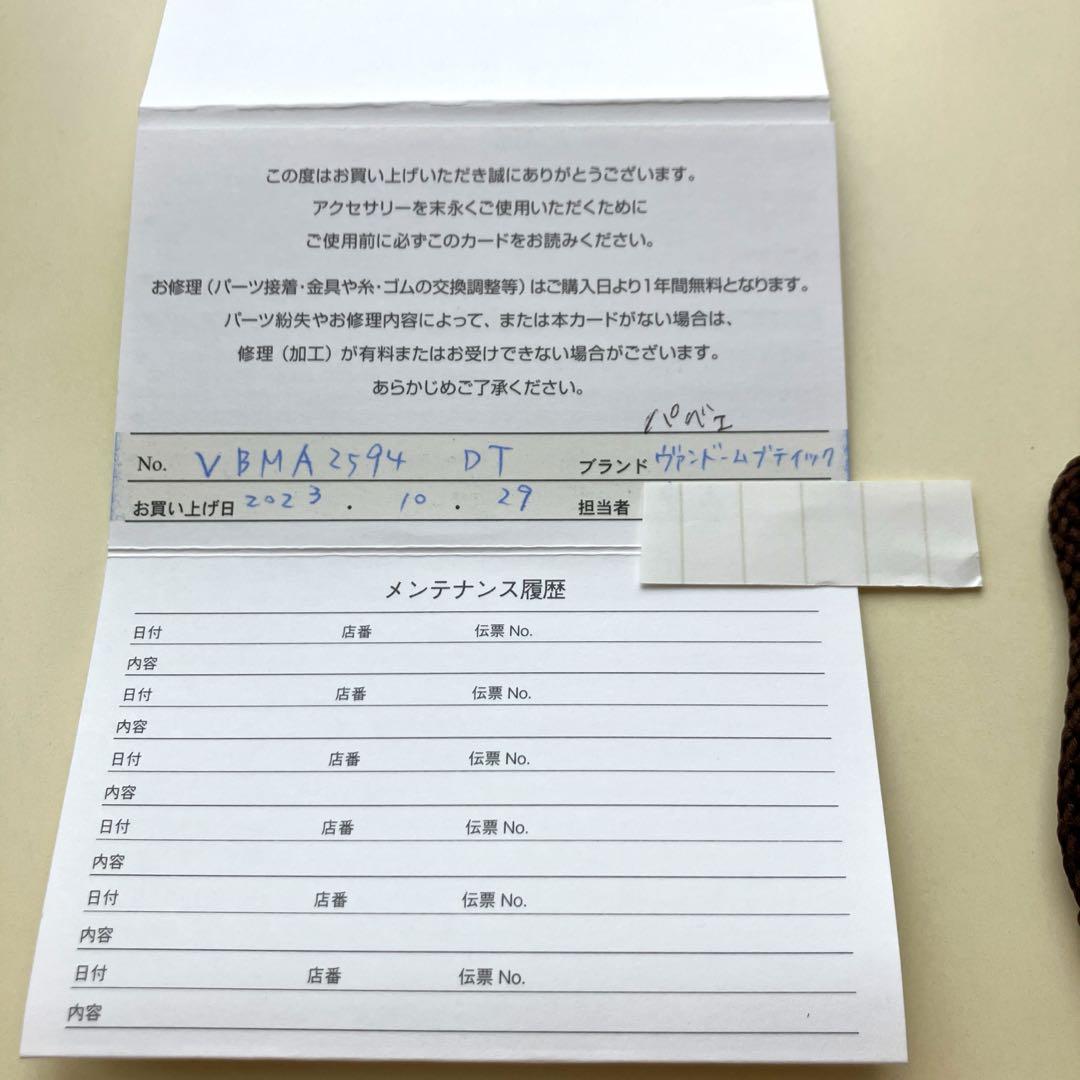 この度はお買い上げいただき誠にありがとうございます。
アクセサリーを末永くご使用いただくために
ご使用前に必ずこのカードをお読みください。
お修理（パーツ接着・金具や糸・ゴムの交換調整等）はご購入日より1年間無料となります。
パーツ紛失やお修理内容によって、または本カードがない場合は、
修理（加工）が有料またはお受けできない場合がございます。
あらかじめご了承ください。
パベェ
No. VBMA2594 DT ブランド ヴァンドームブティック
お買い上げ日 2023 . 10 . 29 担当者
メンテナンス履歴
日付 店番 伝票 No.
内容
日付 店番 伝票 No.
内容
日付 店番 伝票 No.
内容
日付 店番 伝票 No.
内容
日付 店番 伝票 No.
内容
日付 店番 伝票 No.
内容